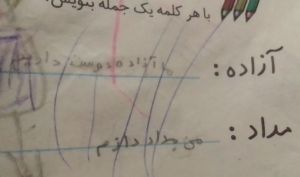 با هر کلمه یک جمله بنویس.
آزاده: ما آزاده دوست داریم
مداد: من مداد دارم